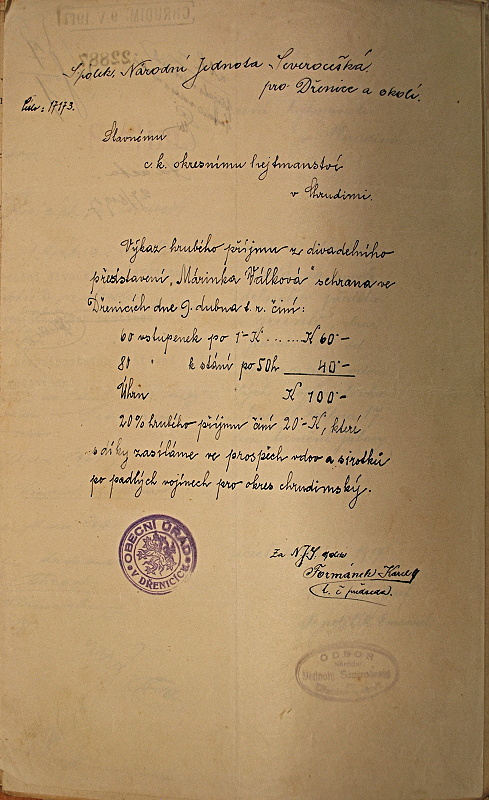 Spolek, Národní Jednota Severočeská
pro Dřenice a okolí.
Číslo: 17173.
Slavnému
c. k. okresnímu hejtmanství
v Chrudimi.
Výkaz hrubého příjmu z divadelního
představení „Márinka Válková" sehrana ve
Dřenicích dne 9. dubna t. r. činí:
60 vstupenek po 1·-K ..... K 60·-
80 " k stání po 50h 40·-
Úhrn K 100·-
20% hrubého příjmu činí 20·-K, které
s díky zasíláme ve prospěch vdov a sirotků
po padlých vojínech pro okres chrudimský.
Za N.J.S.
Formánek Karel
t. č předseda.
OBECNÍ ÚŘAD
V DŘENICÍCH
ODBOR
Národní
Jednoty Severočeské
CHRUDIM
22887